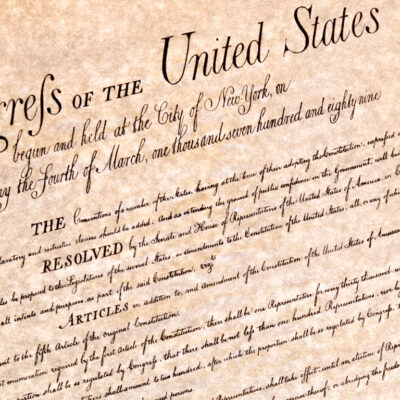 ress OF THE United States
begun and held at the City of New York, on
the Fourth of March, one thousand seven hundred and eighty nine
THE Conventions of a number of the States, having at the time of their adopting the Constitution, expressed a
declaratory and restrictive clauses should be added: And as extending the ground of public confidence in the Government, will best
RESOLVED by the Senate and House of Representatives of the United States of America, in
be proposed to the Legislatures of the several States, as amendments to the Constitution of the United States, all, or any of
all intents and purposes, as part of the said Constitution; vizt
ARTICLES in addition to, and Amendment of the Constitution of the United States of America
to the fifth Article of the original Constitution.
enumeration required by the first Article of the Constitution, there shall be one Representative for every thirty thousand,
shall be so regulated by Congress, that there shall be not less than one hundred Representatives, nor
shall amount to two hundred, after which the proportion shall be so regulated by Congress,
persons.
Representatives, shall take effect, until an election of
thereof, or abridging the